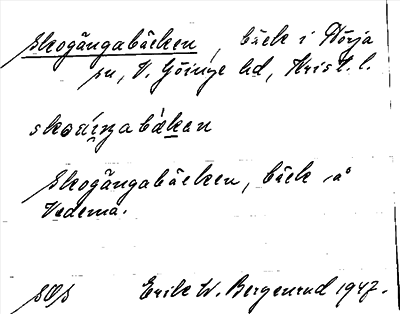 Skogängabäcken, bäck i Rörja
sn, V. Göinge hd, Krist. l.
Skogängabäcken, bäck å
Vedema.
SOS Erik W. Bergenrud 1947.